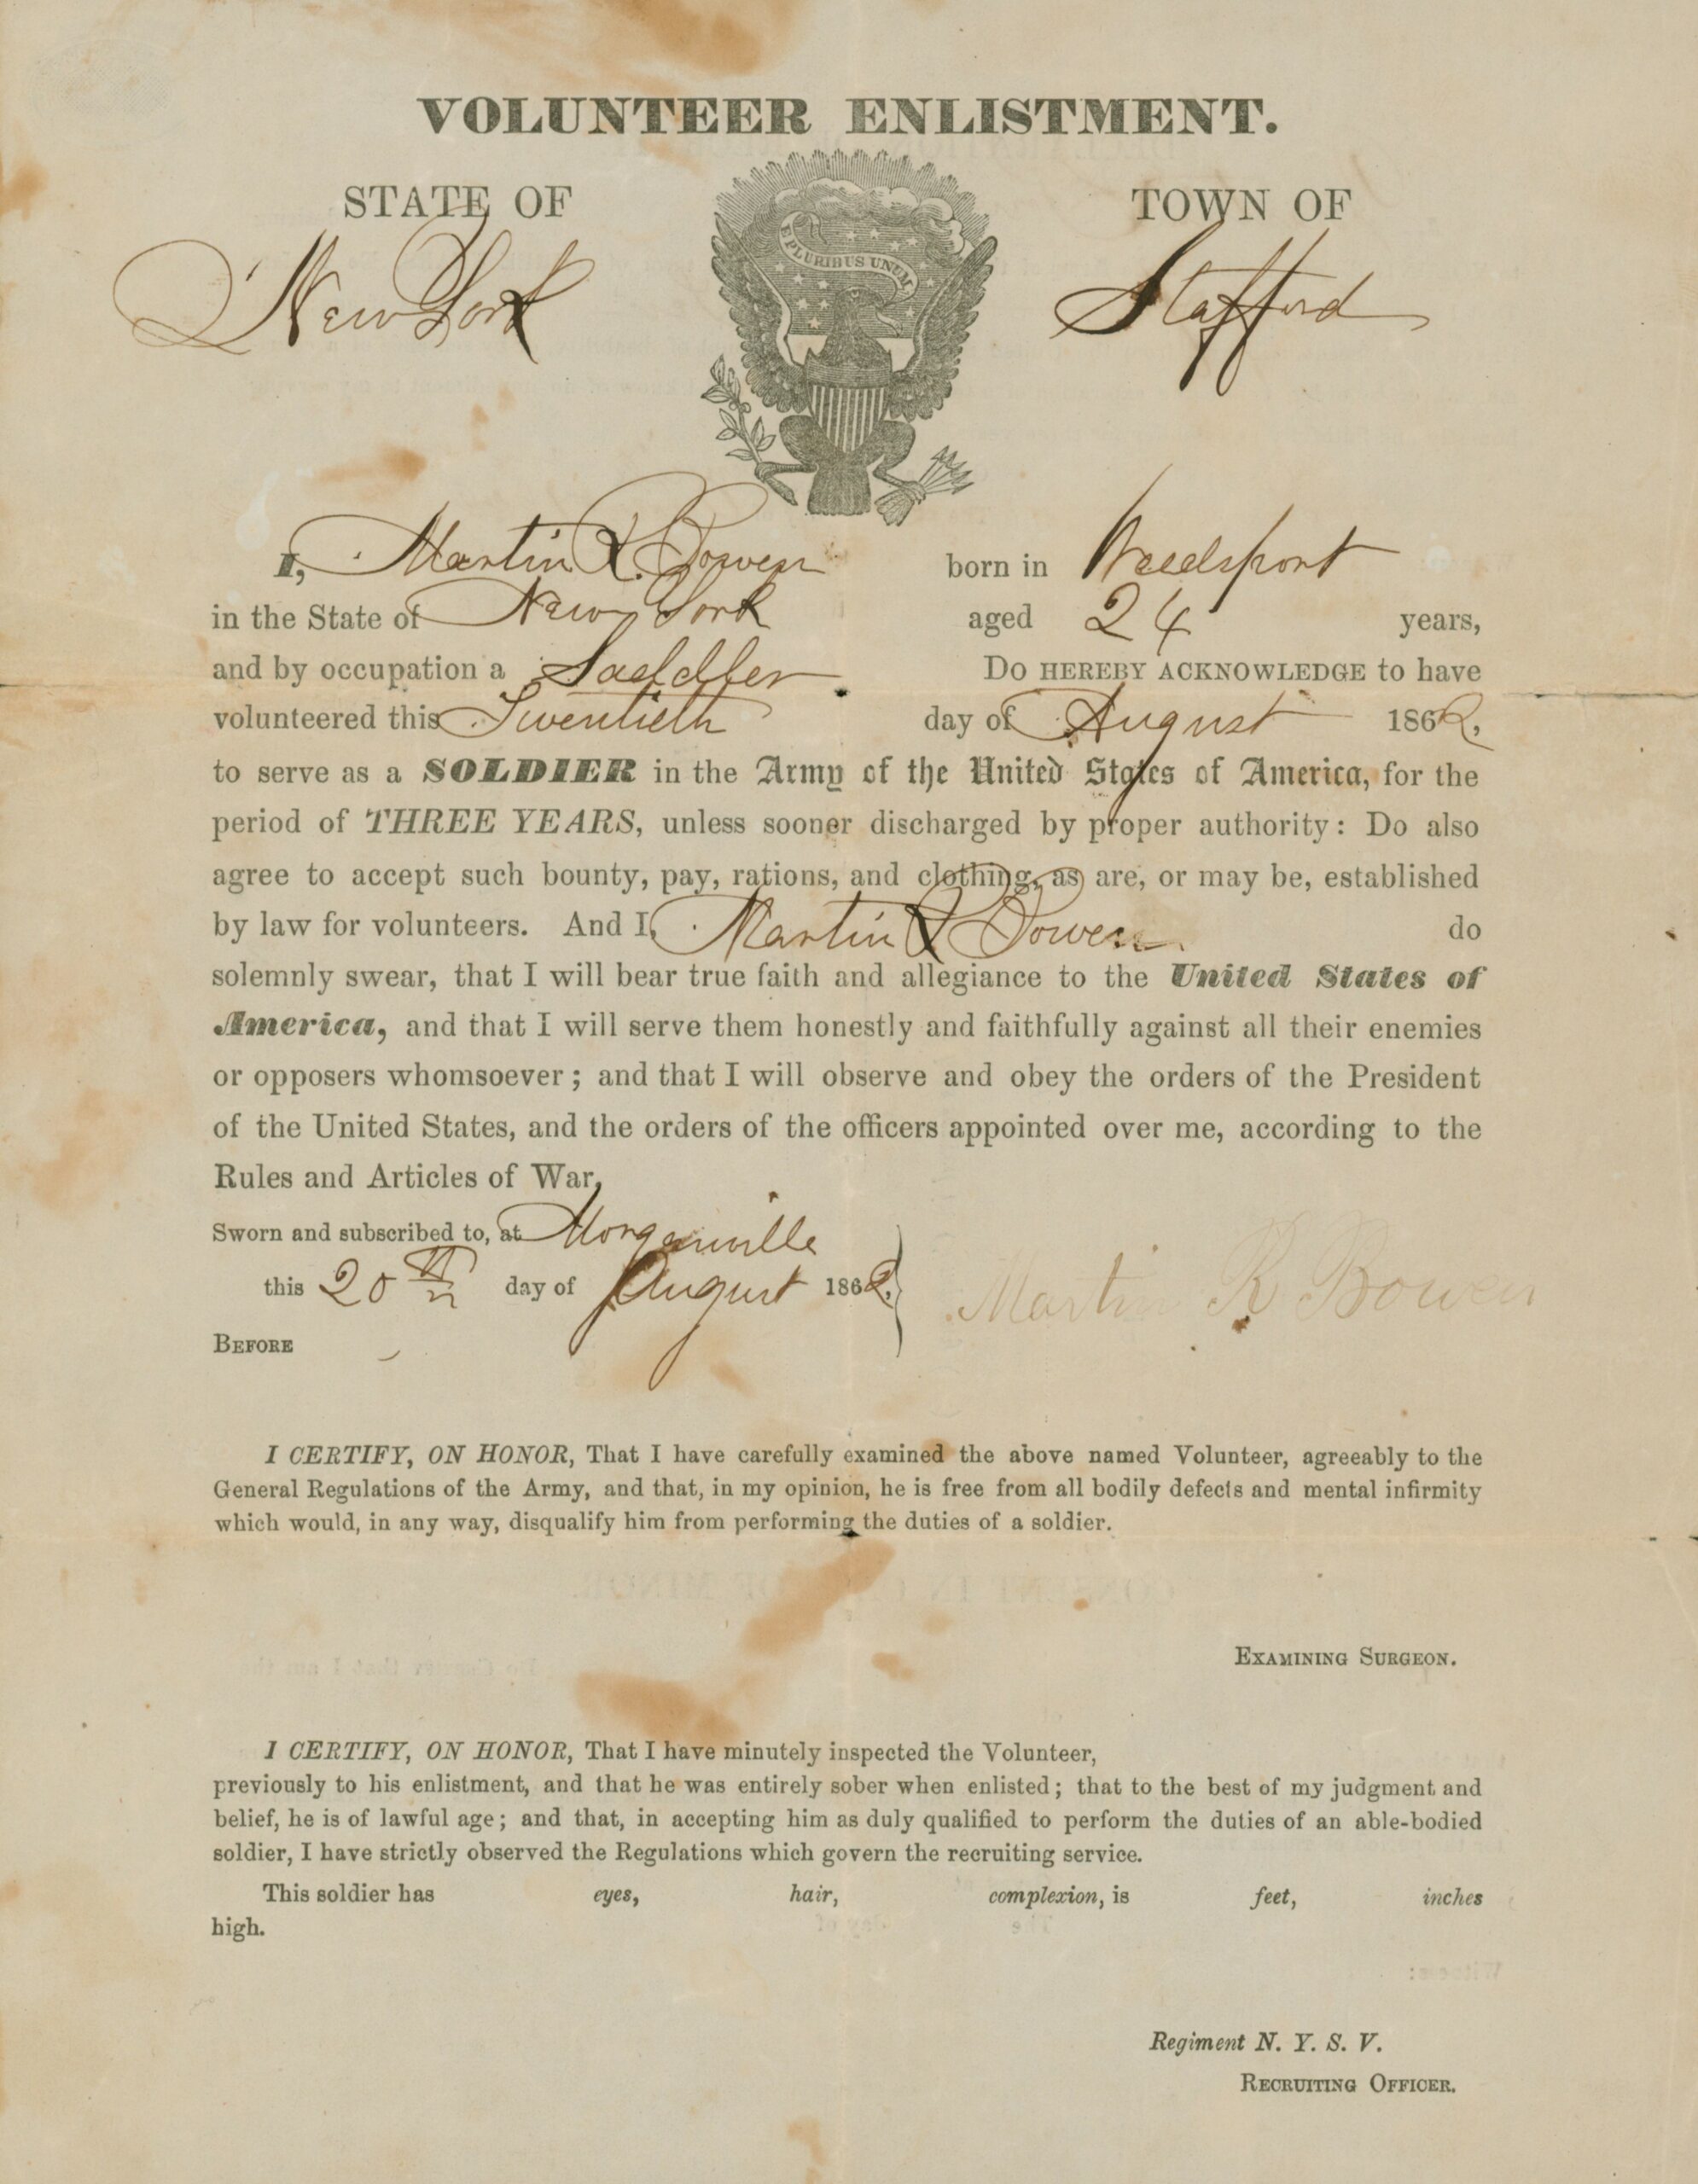 VOLUNTEER ENLISTMENT.
STATE OF TOWN OF
E PLURIBUS UNUM
New York Stafford
I, Martin R. Bowen born in Weedsport
in the State of New York aged 24 years,
and by occupation a Saddler Do HEREBY ACKNOWLEDGE to have
volunteered this Twentieth day of August 1862,
to serve as a SOLDIER in the Army of the United States of America, for the
period of THREE YEARS, unless sooner discharged by proper authority: Do also
agree to accept such bounty, pay, rations, and clothing, as are, or may be, established
by law for volunteers. And I, Martin R Bowen do
solemnly swear, that I will bear true faith and allegiance to the United States of
America, and that I will serve them honestly and faithfully against all their enemies
or opposers whomsoever; and that I will observe and obey the orders of the President
of the United States, and the orders of the officers appointed over me, according to the
Rules and Articles of War,
Sworn and subscribed to, at Morganville
this 20th day of August 1862. Martin R Bowen
BEFORE
I CERTIFY, ON HONOR, That I have carefully examined the above named Volunteer, agreeably to the
General Regulations of the Army, and that, in my opinion, he is free from all bodily defects and mental infirmity
which would, in any way, disqualify him from performing the duties of a soldier.
EXAMINING SURGEON.
I CERTIFY, ON HONOR, That I have minutely inspected the Volunteer,
previously to his enlistment, and that he was entirely sober when enlisted; that to the best of my judgment and
belief, he is of lawful age; and that, in accepting him as duly qualified to perform the duties of an able-bodied
soldier, I have strictly observed the Regulations which govern the recruiting service.
This soldier has eyes, hair, complexion, is feet, inches
high.
Regiment N. Y. S. V.
RECRUITING OFFICER.